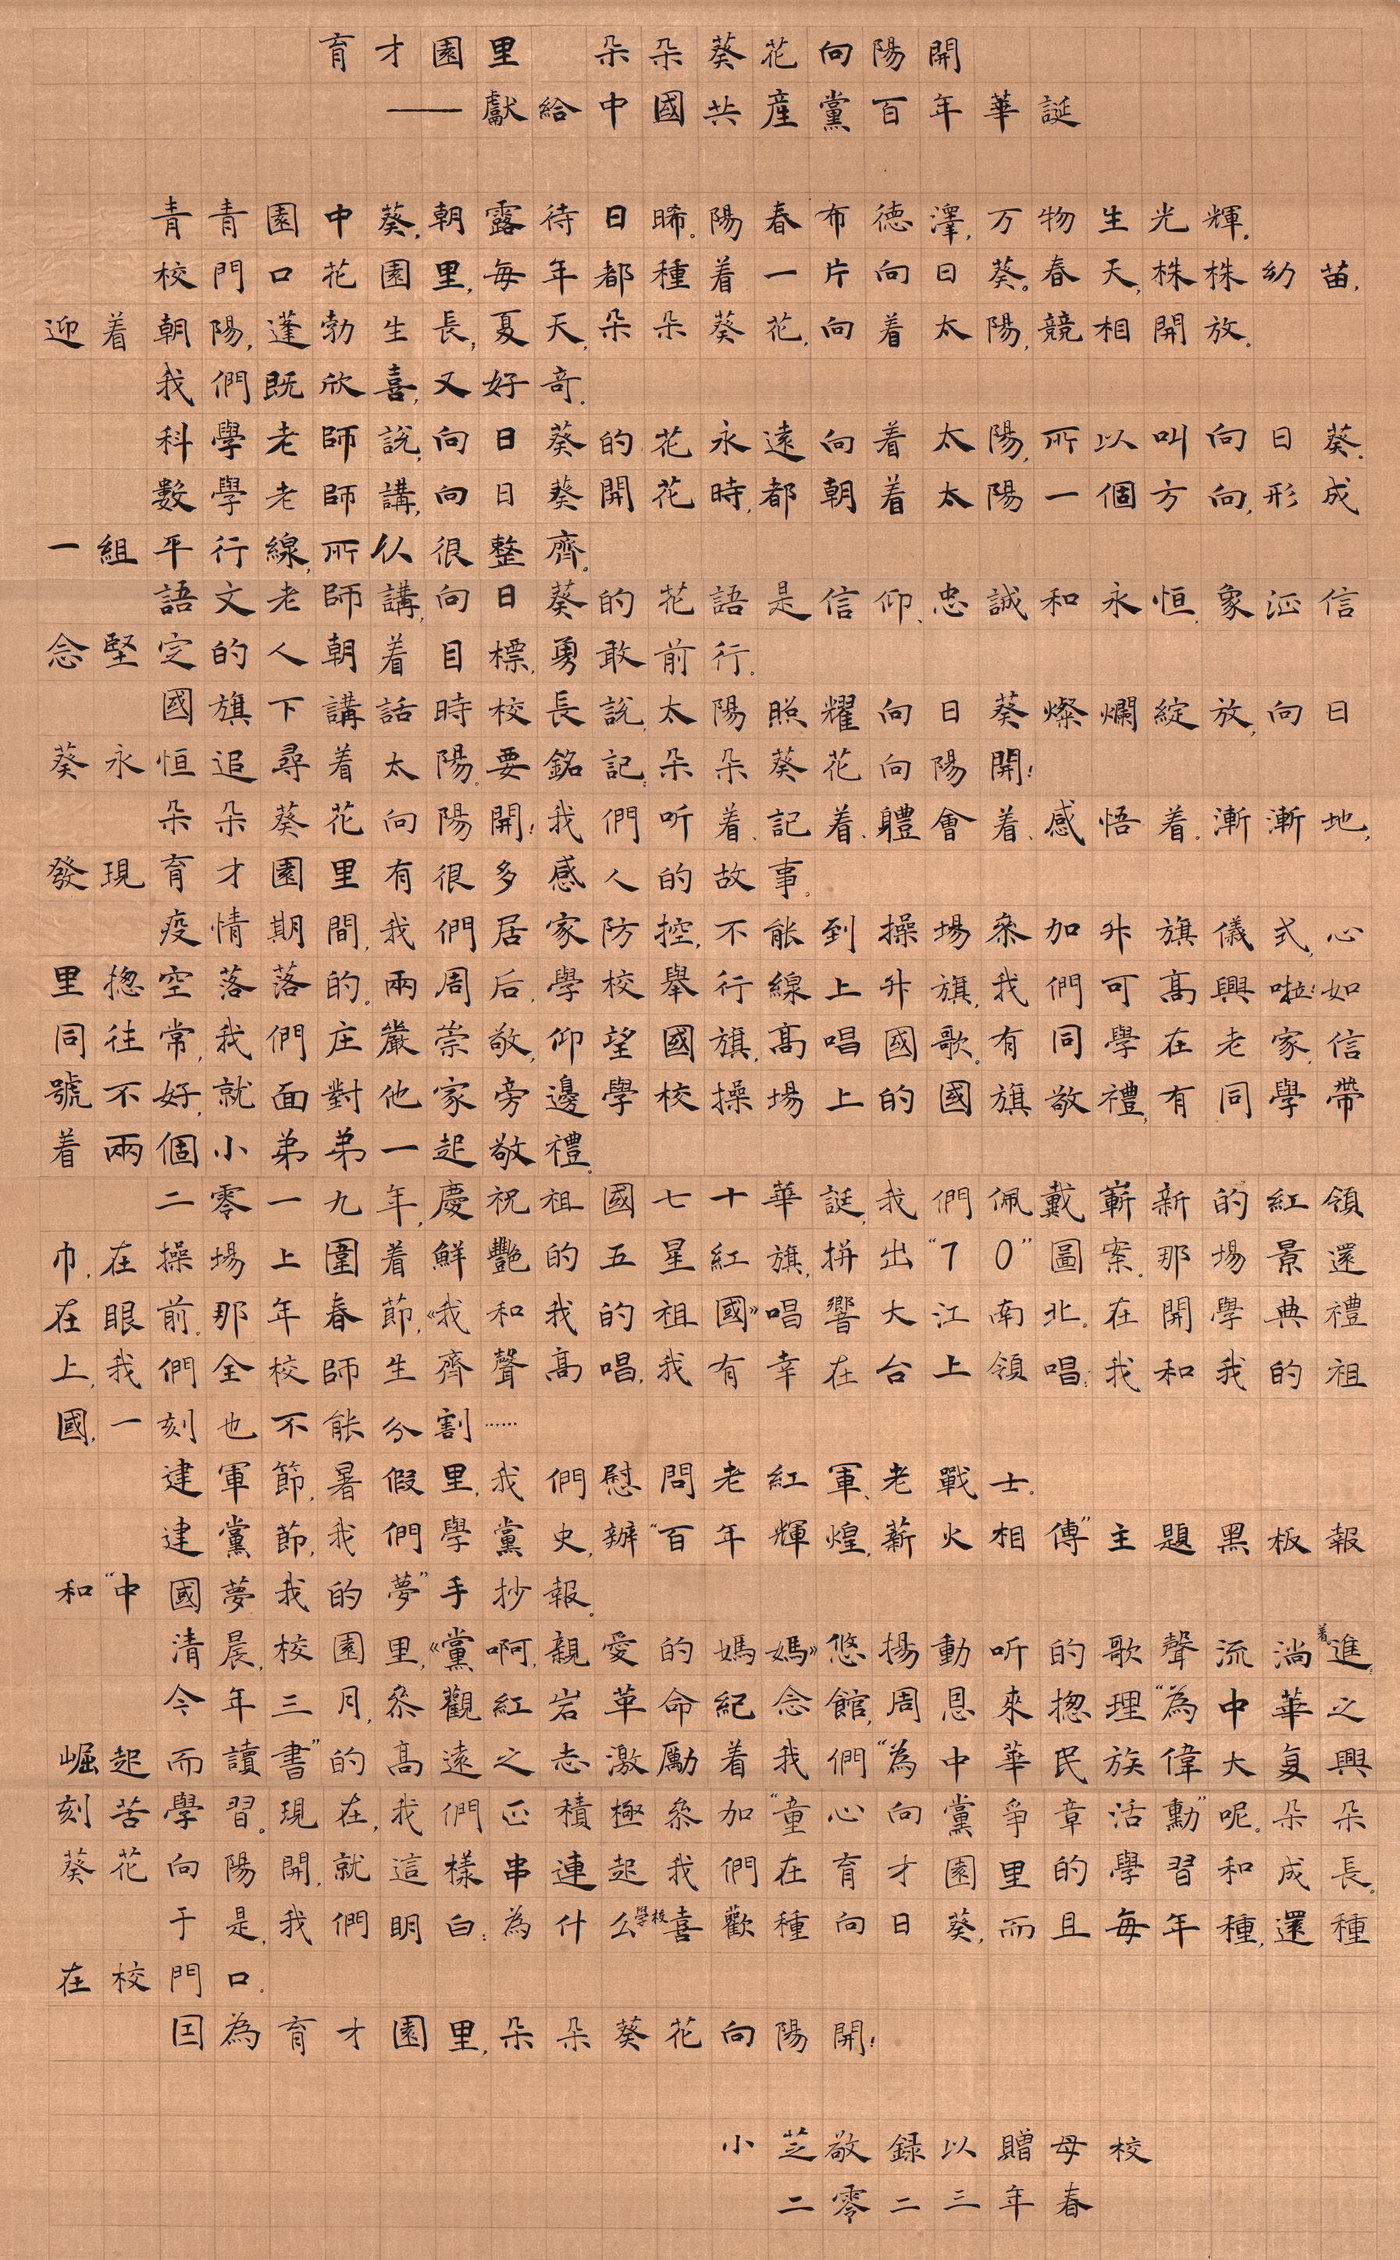 育才園里　朵朵葵花向陽開
——獻給中國共産黨百年華誕
青青園中葵,朝露待日晞。陽春布德澤,万物生光輝。
校門口花園里,每年都種着一片向日葵。春天,株株幼苗,
迎着朝陽,蓬勃生長,夏天,朵朵葵花,向着太陽,競相開放。
我們既欣喜,又好奇。
科學老師説,向日葵的花永遠向着太陽,所以叫向日葵。
數學老師講,向日葵開花時,都朝着太陽一個方向,形成
一組平行線,所以很整齊。
語文老師講,向日葵的花語是信仰、忠誠和永恒,象征信
念堅定的人朝着目標,勇敢前行。
國旗下講話時校長説,太陽照耀向日葵燦爛綻放,向日
葵永恒追尋着太陽。要銘記:朵朵葵花向陽開!
朵朵葵花向陽開!我們听着、記着、體會着、感悟着。漸漸地,
發現育才園里有很多感人的故事。
疫情期間,我們居家防控,不能到操場参加升旗儀式,心
里揔空落落的。兩周后,學校舉行線上升旗,我們可高興啦!如
同往常,我們庄嚴崇敬,仰望國旗,高唱國歌。有同學在老家,信
號不好,就面對他家旁邊學校操場上的國旗敬禮,有同學帶
着兩個小弟弟一起敬禮。
二零一九年,慶祝祖國七十華誕,我們佩戴嶄新的紅領
巾,在操場上圍着鮮艷的五星紅旗,拼出“70”圖案。那場景還
在眼前。那年春節,《我和我的祖國》唱響大江南北。在開學典禮
上,我們全校師生齊聲高唱,我有幸在台上領唱:我和我的祖
國,一刻也不能分割……
建軍節,暑假里,我們慰問老紅軍、老戰士。
建黨節,我們學黨史,辦“百年輝煌,薪火相傳”主題黑板報
和“中國夢我的夢”手抄報。
清晨,校園里,《黨啊,親愛的媽媽》悠揚動听的歌聲流淌着。進
今年三月,参觀紅岩革命紀念館,周恩來揔理“為中華之
崛起而讀書”的高遠之志激勵着我們“為中華民族偉大复興
刻苦學習。現在,我們正積極参加“童心向黨爭章活動”呢。朵朵
葵花向陽開,就這樣串連起我們在育才園里的學習和成長。
于是,我們明白:為什么學校喜歡種向日葵,而且每年種,還種
在校門口。
因為育才園里,朵朵葵花向陽開!
小芝敬録以贈母校
二零二三年春